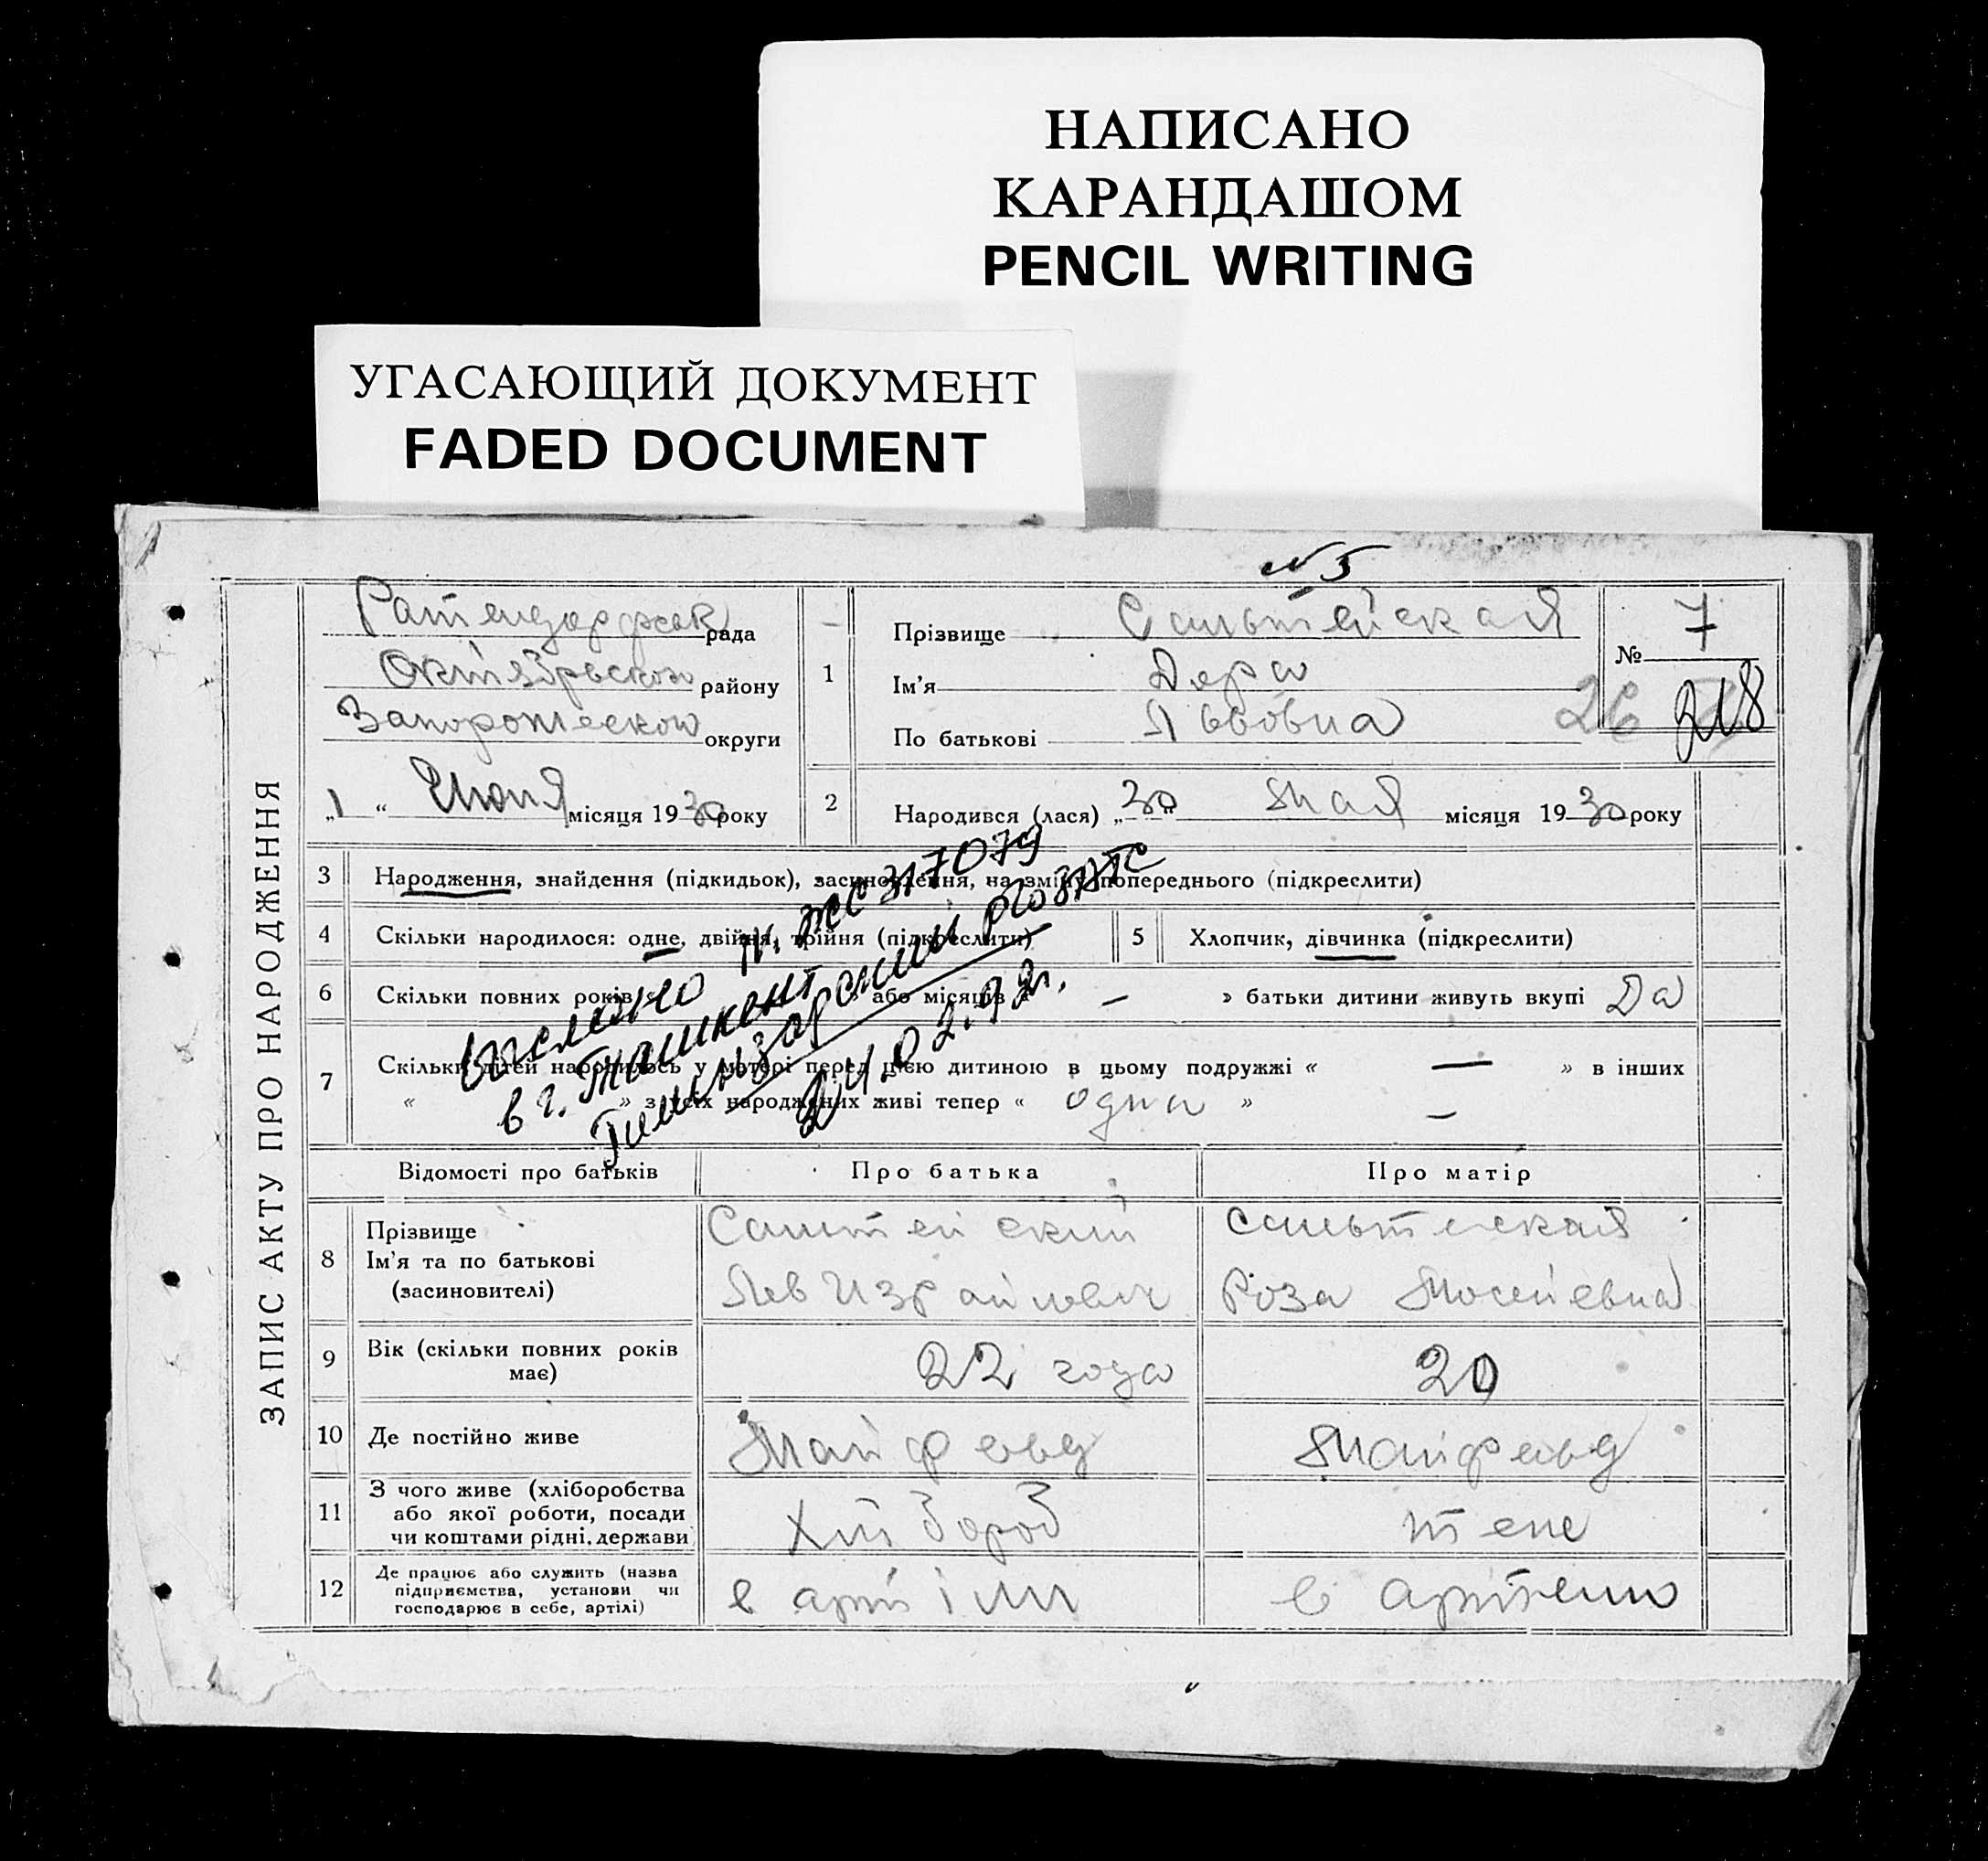 НАПИСАНО
КАРАНДАШОМ
PENCIL WRITING
УГАСАЮЩИЙ ДОКУМЕНТ
FADED DOCUMENT
№ 5
ЗАПИС АКТУ ПРО НАРОДЖЕННЯ
рада
Октябрьского району
Запорожеской округи
„1“ Июня місяця 1930 року
1 Прізвище Сальтейская
Ім'я Дора
По батькові Львовна
№ 7
26
218
2 Народився (лася) „30“ Мая місяця 1930 року
3 Народження, знайдення (підкидьок), засиновлення, на зміну попереднього (підкреслити)
4 Скільки народилося: одне, двійня, трійня (підкреслити)
5 Хлопчик, дівчинка (підкреслити)
6 Скільки повних років або місяців « — » батьки дитини живуть вкупі Да
7 Скільки дітей народилось у матері перед цією дитиною в цьому подружжі « — » в інших
« » з усіх народжених живі тепер « одна » —
н. ЖС 317079
в г. Ташкент
РОЗАГС
24.02.92г.
Відомості про батьків Про батька Про матір
8 Прізвище
Ім'я та по батькові
(засиновителі)
Сальтейский
Лев Израйлевич
Сальтейская
Роза Мосейевна
9 Вік (скільки повних років
має)
22 года
20
10 Де постійно живе Майфельд Майфельд
11 З чого живе (хліборобства
або якої роботи, посади
чи коштами рідні, держави
Хлібороб
12 Де працює або служить (назва
підприємства, установи чи
господарює в себе, артілі)
в артіли
в артели